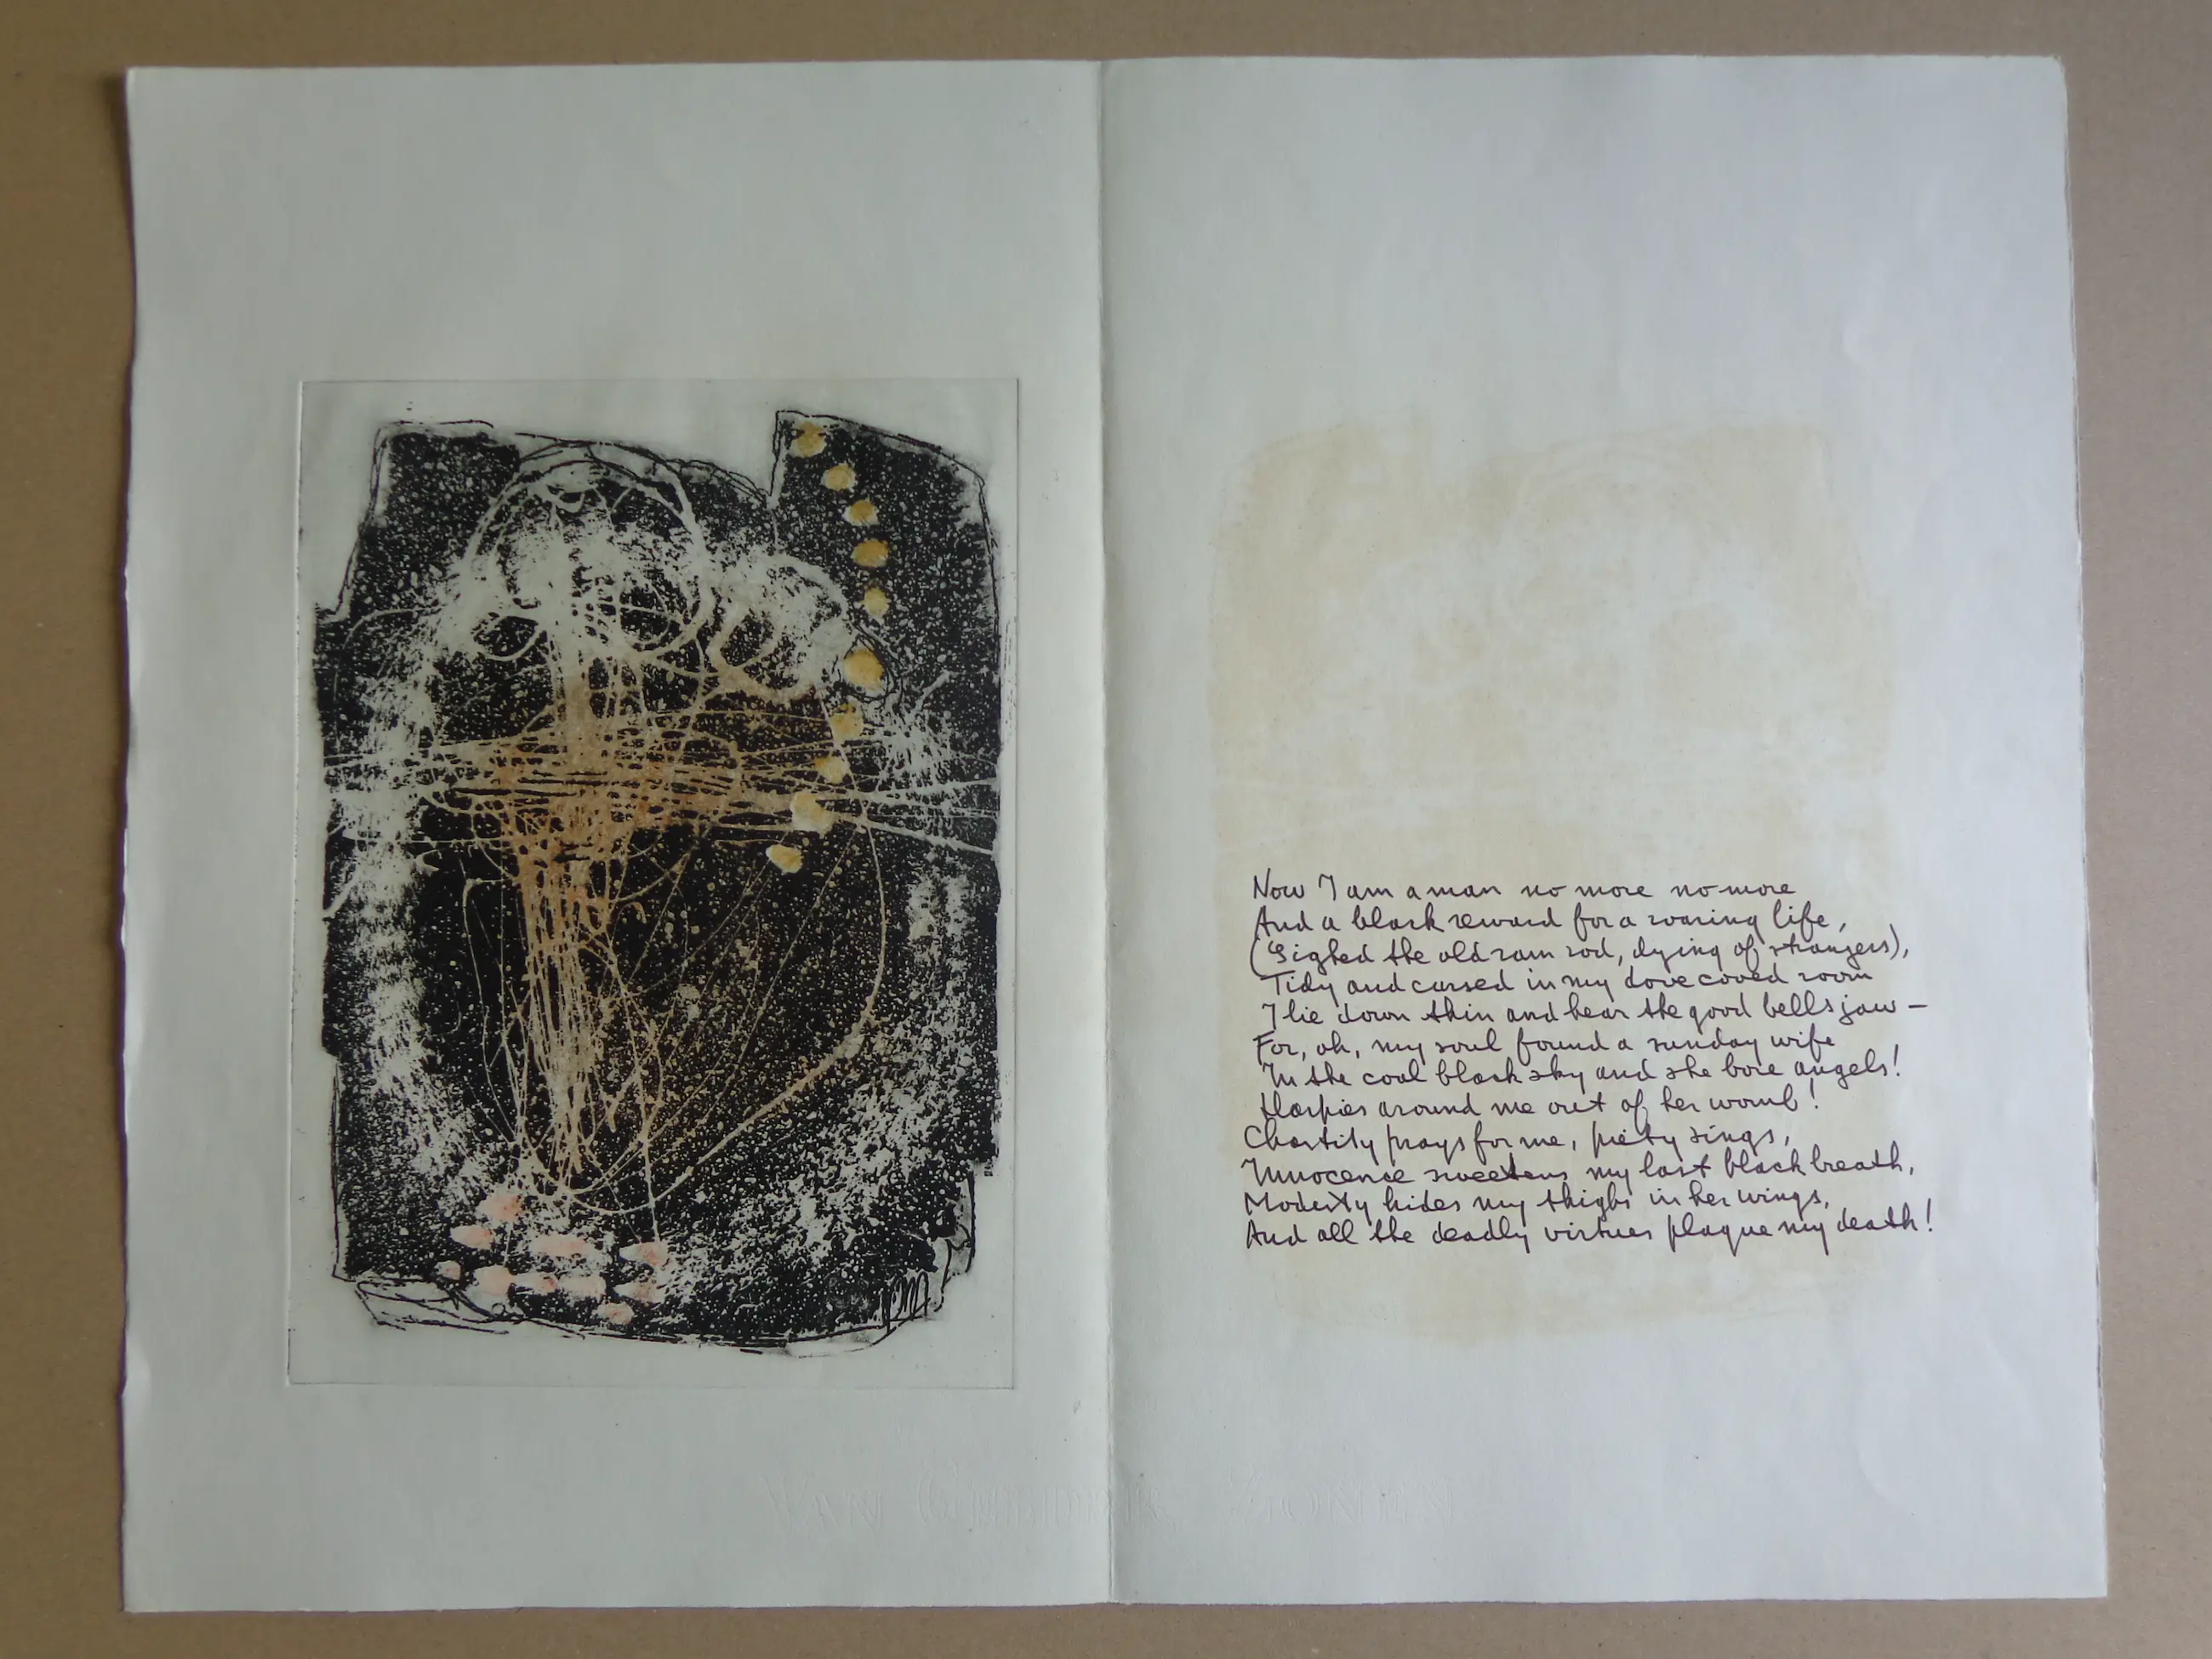 Now I am a man no more no more
And a black reward for a roaring life,
(Sighed the old ram rod, dying of strangers),
Tidy and cursed in my dove cooed room
I lie down thin and hear the good bells jaw —
For, oh, my soul found a sunday wife
In the coal black sky and she bore angels!
Harpies around me out of her womb!
Chastity prays for me, piety sings,
Innocence sweetens my last black breath,
Modesty hides my thighs in her wings,
And all the deadly virtues plague my death!
VAN GELDER ZONEN